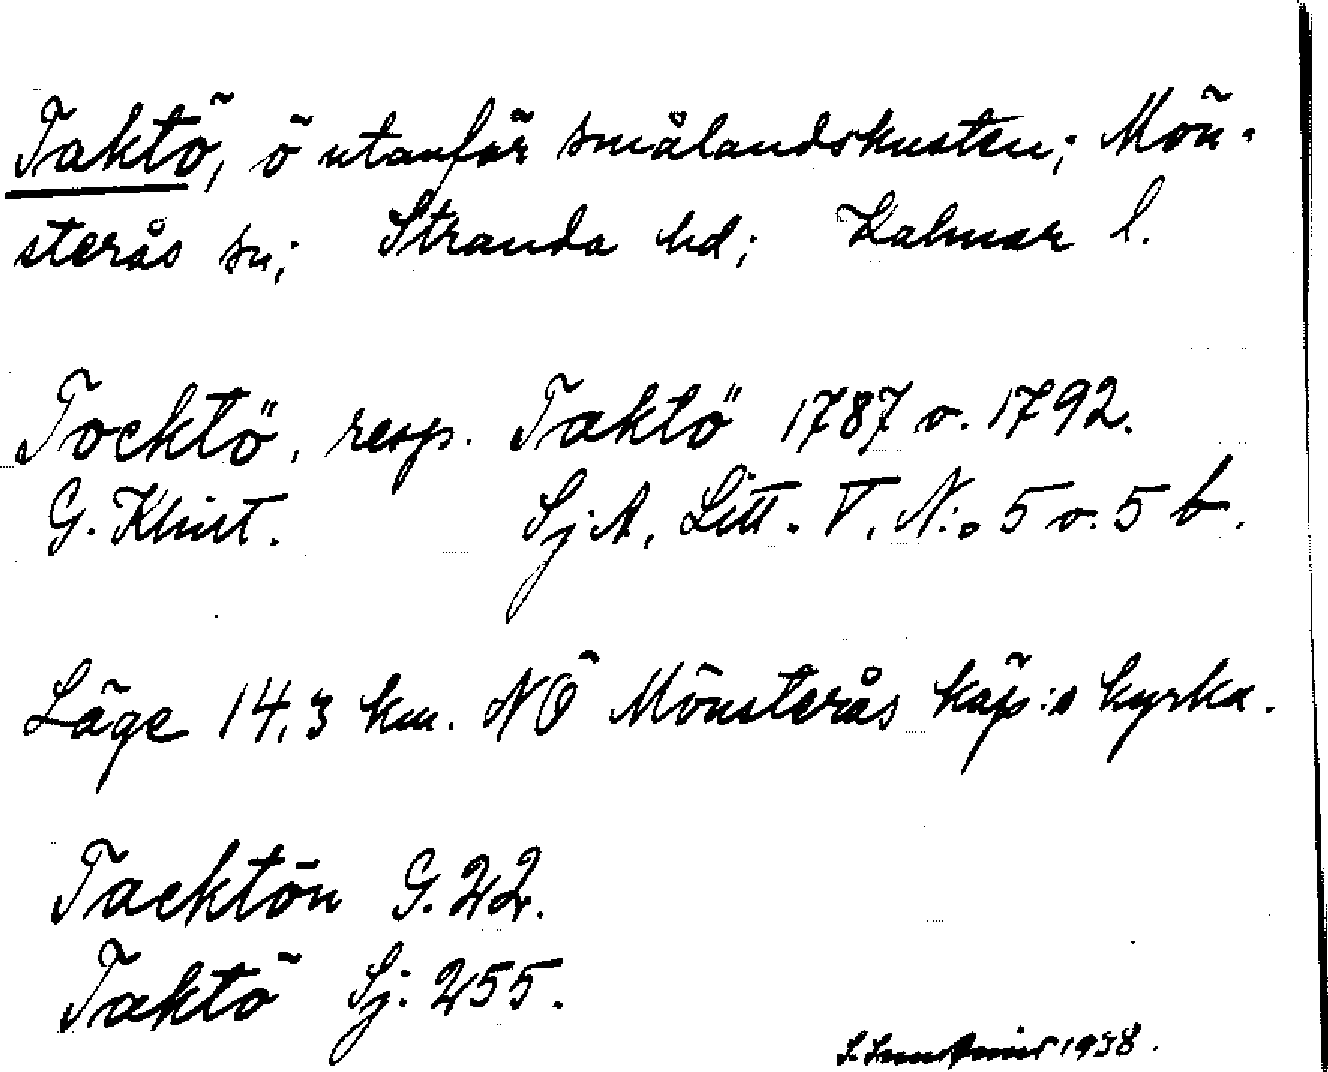 Taktö, ö utanför smålandskusten; Mön-
sterås sn; Stranda hd; Kalmar l.
Tocktö, resp. Taktö 1787 o. 1792.
G. Klint. Sj.A, Litt. V. N:o 5 o. 5 b.
Läge 14,3 km. NÖ Mönsterås köp:s kyrka.
Tacktön G. 22.
Taktö Sj. 255.
1938.